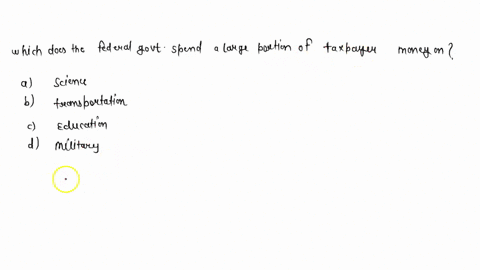 which does the federal govt. spend a large portion of taxpayer money on?
a) Science
b) transportation
c) Education
d) military